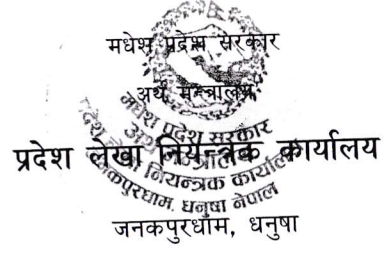 मधेश प्रदेश सरकार
अर्थ मन्त्रालय
प्रदेश लेखा नियन्त्रक कार्यालय
जनकपुरधाम, धनुषा
मधेश प्रदेश सरकार
अर्थ मन्त्रालय
प्रदेश लेखा नियन्त्रक कार्यालय
जनकपुरधाम, धनुषा नेपाल